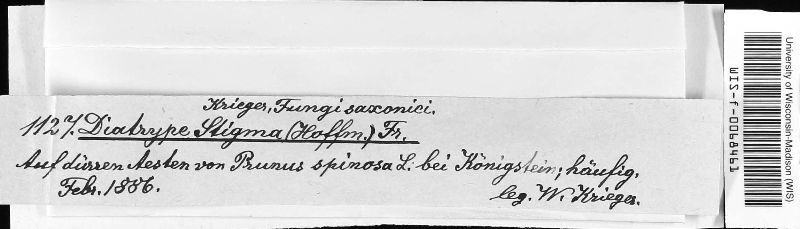 Krieger, Fungi saxonici.
1127. Diatrype Stigma (Hoffm.) Fr.
Auf dürren Aesten von Prunus spinosa L. bei Königstein; häufig.
Febr. 1886.
leg. W. Krieger.
University of Wisconsin-Madison (WIS)
WIS-f-0068461